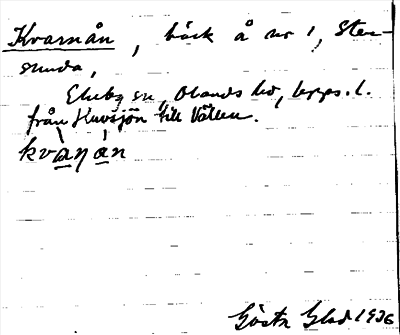 Kvarnån, bäck å no 1, Sten-
sunda,
Ekeby sn, Olands hd, Upps. l.
från Huvsjön till Vällen.
kvàn án
Gösta Glad 1936